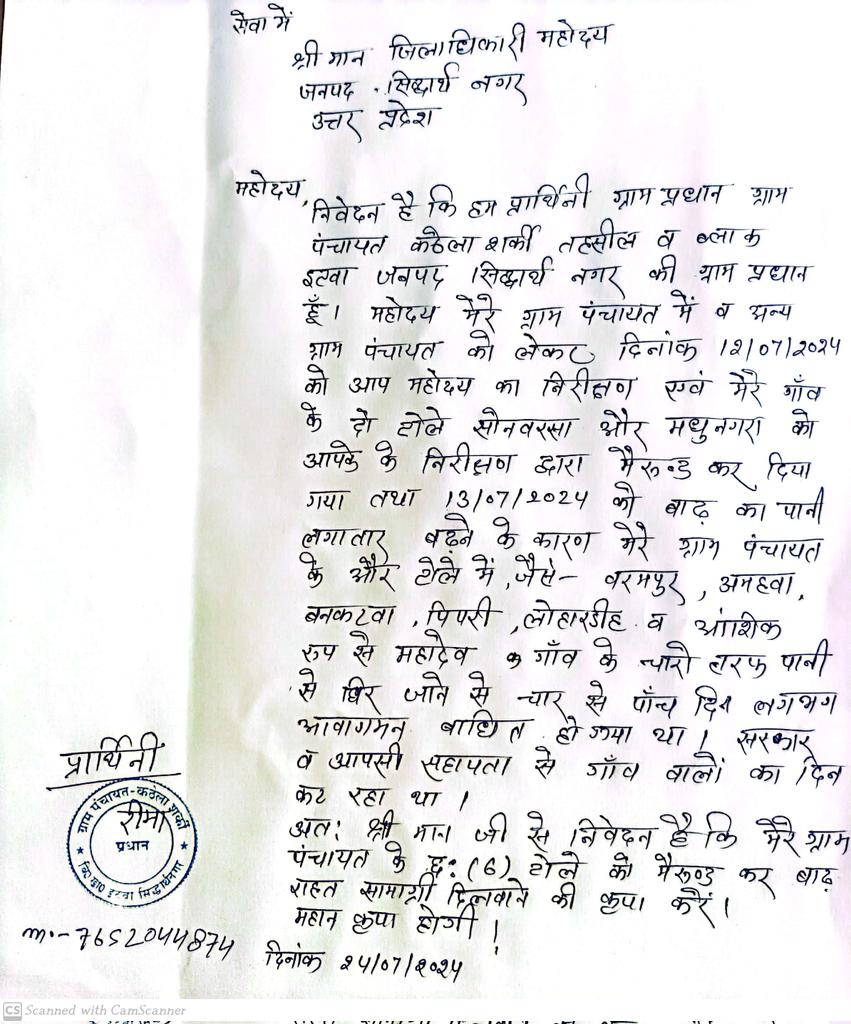 सेवा में
श्री मान जिलाधिकारी महोदय
जनपद - सिद्धार्थ नगर
उत्तर प्रदेश
महोदय,
निवेदन है कि हम प्रार्थिनी ग्राम प्रधान ग्राम
पंचायत कठेला शर्की तहसील व ब्लाक
इटवा जनपद सिद्धार्थ नगर की ग्राम प्रधान
हूँ। महोदय मेरे ग्राम पंचायत में व अन्य
ग्राम पंचायत को लेकर दिनांक 12/07/2024
को आप महोदय का निरीक्षण एवं मेरे गाँव
के दो टोले सोनवरसा और मधुनगरा को
आपके के निरीक्षण द्वारा मैरूण्ड कर दिया
गया तथा 13/07/2024 को बाढ़ का पानी
लगातार बढ़ने के कारण मेरे ग्राम पंचायत
के और टोले में, जैसे- वरमपुर, अमहवा,
बनकटवा, पिपरी, लोहारडीह व आंशिक
रुप से महादेव गाँव के चारो तरफ पानी
से घिर जाने से चार से पाँच दिन लगभग
आवागमन बाधित हो गया था। सरकार
व आपसी सहायता से गाँव वालों का दिन
कट रहा था।
अतः श्री मान जी से निवेदन है कि मेरे ग्राम
पंचायत के छ: (6) टोले को मैरूण्ड कर बाढ़
राहत सामाग्री दिलवाने की कृपा करें।
महान कृपा होगी!
दिनांक 24/07/2024
प्रार्थिनी
ग्राम पंचायत-कठेला शर्की
रीमा
प्रधान
वि० ख० इटवा सिद्धार्थनगर
m.- 7652044874
CS Scanned with CamScanner